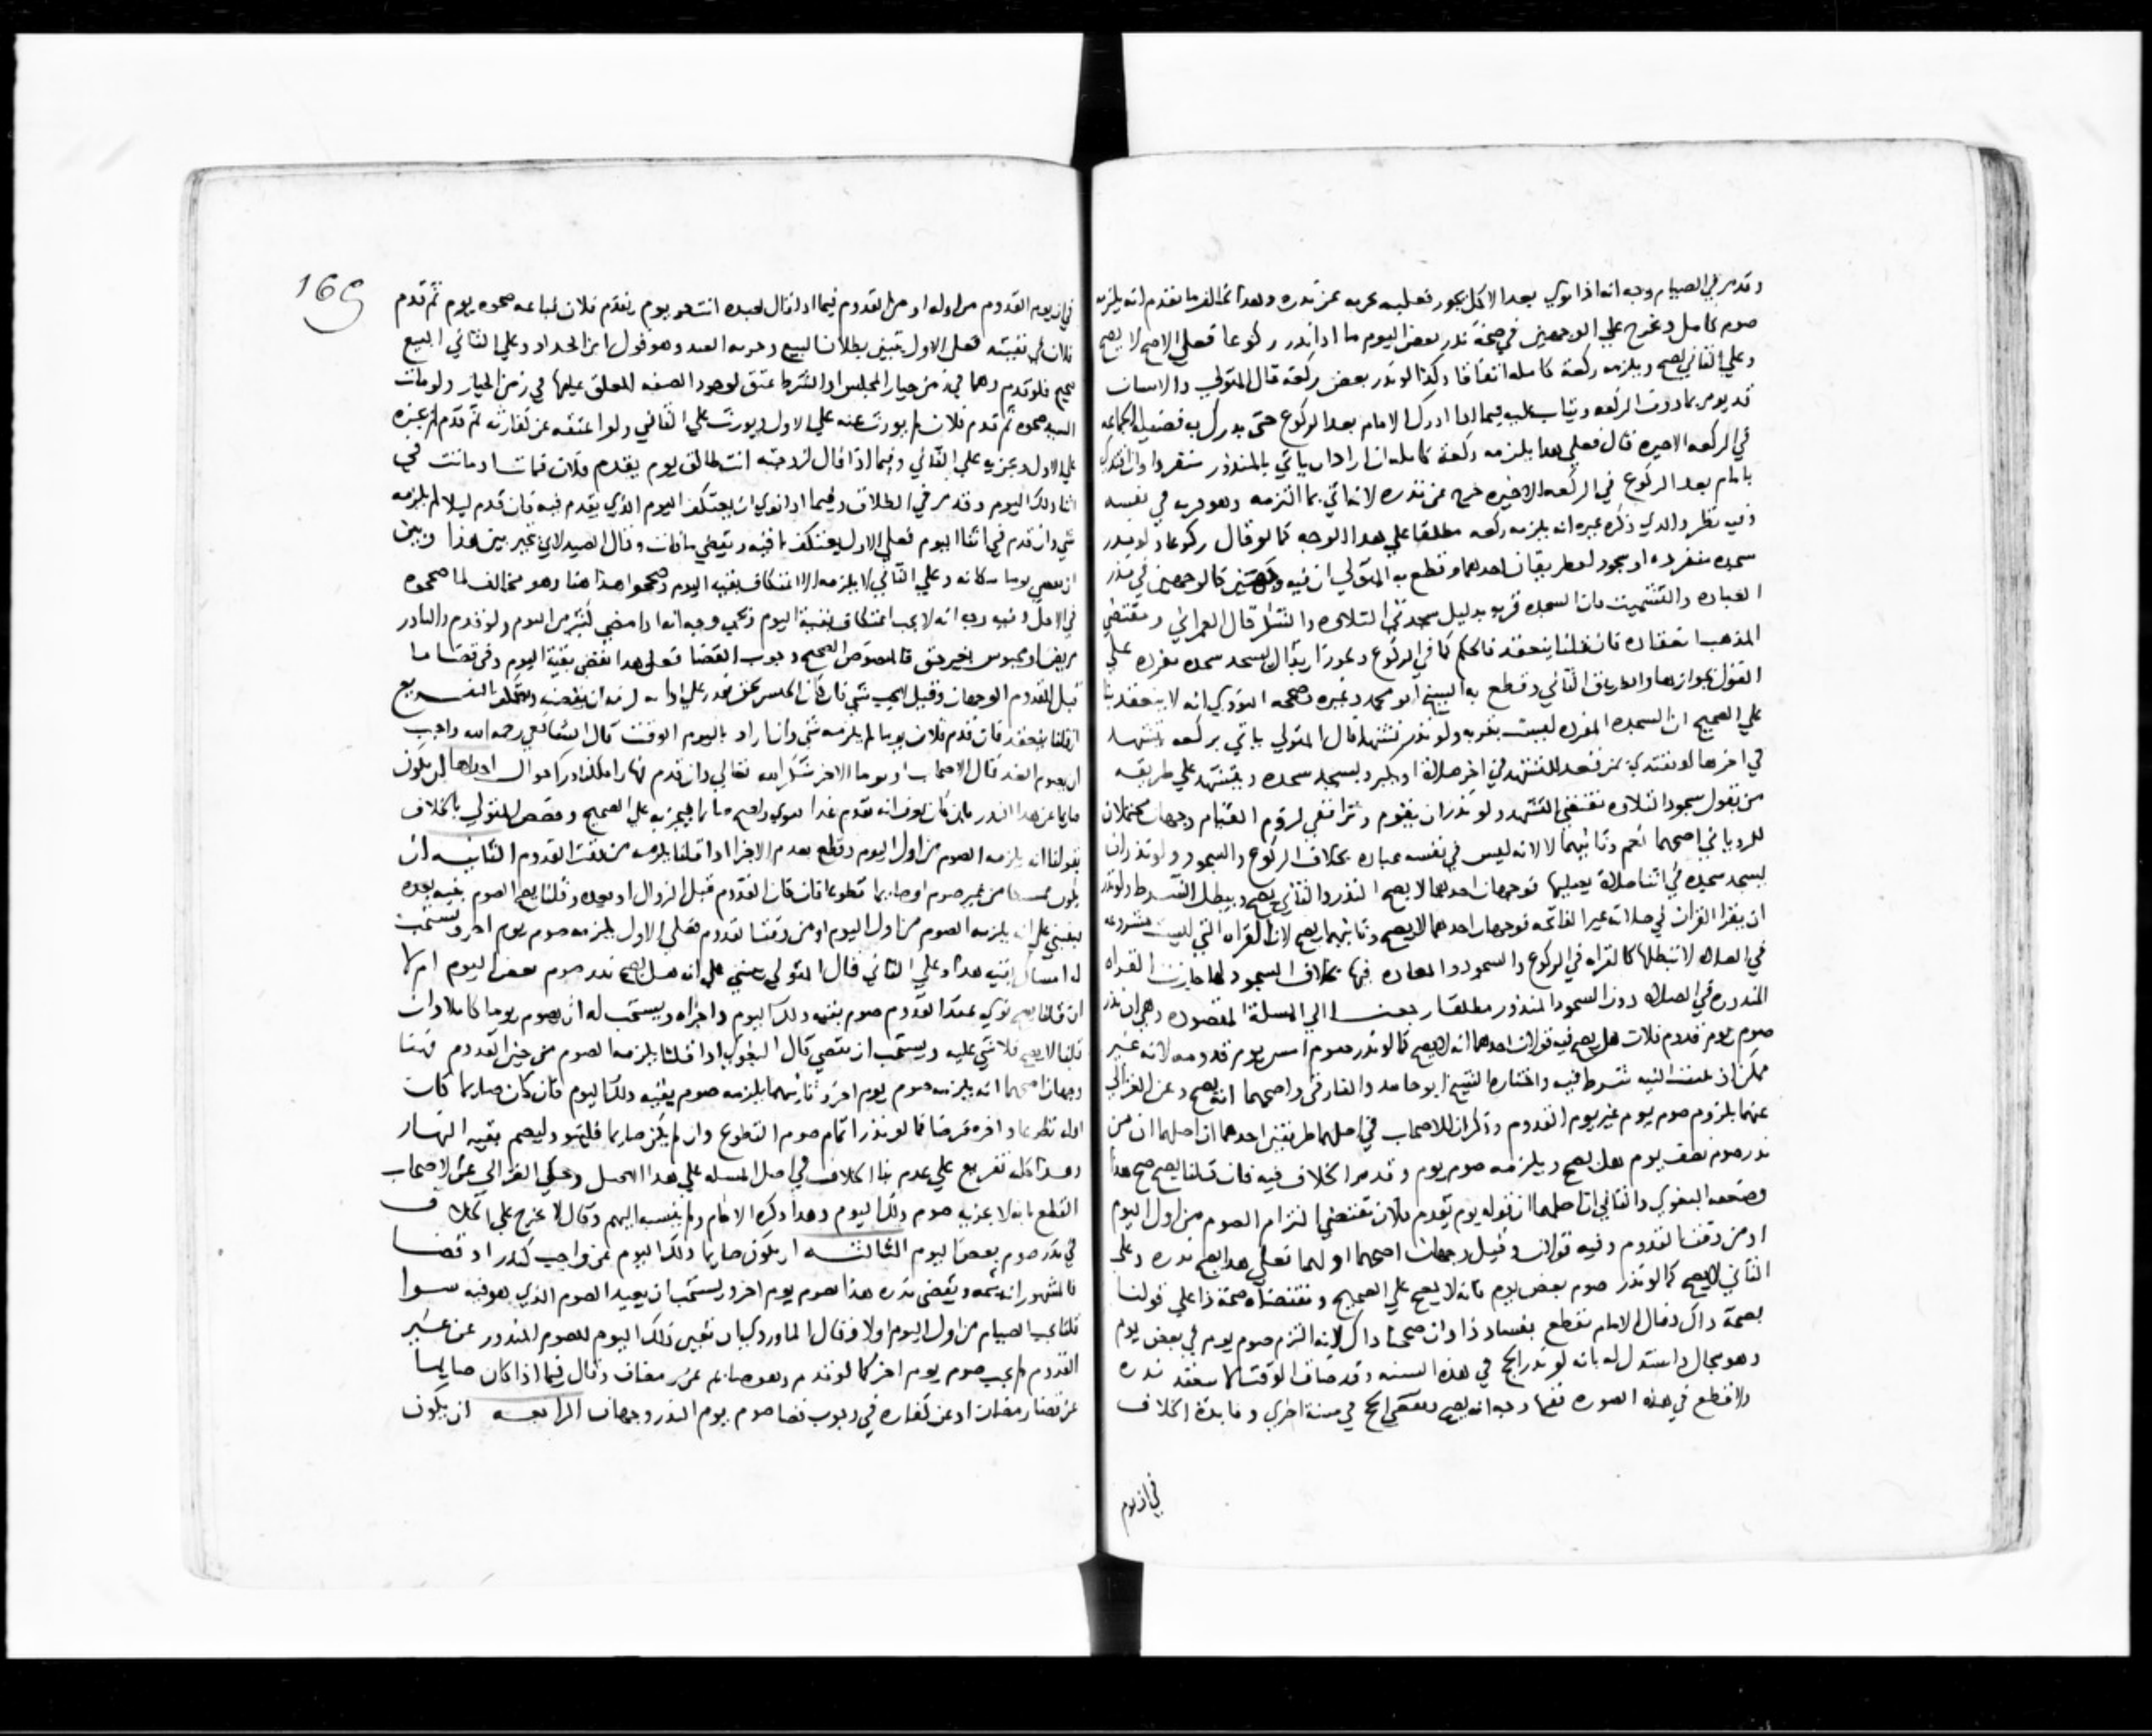 وقد مر في الصيام وجه انه اذا نوي بعد الاكل يجوز فعليه يخرج عن نذره وهذا يخالف ما تقدم انه يلزمه
صوم كامل ويخرج علي الوجهين في صحة نذر بعض اليوم ما اذا نذر ركوعا فعلي الاصح لا يصح
وعلي الثاني يصح ويلزمه ركعة كاملة اتفاقا وكذا لو نذر بعض ركعة قال المتولي والانسان
قد يومر بما دون الركعه ويثاب عليه فيما اذا ادرك الامام بعد الركوع حتي يدرك به فضيلة الجماعه
في الركعه الاخيره قال فعلي هذا يلزمه ركعة كاملة ان اراد ان ياتي بالمنذور منفردا وان اقتدي
بامام بعد الركوع في الركعه الاخيره خرج عن نذره لانه اتي بما التزمه وهو قربه في نفسه
وفيه نظر والذي ذكره غيره انه يلزمه ركعه مطلقا علي هذا الوجه كما لو قال ركوعا ولو نذر
سجده منفرده او سجود فطريقان احدهما وقطع به المتولي ان فيه وجهين كالوجهين في نذر
العياده والتشميت فان السجده قربه بدليل سجدتي التلاوه والشكر قال العمراني ومقتضي
المذهب انعقاده فان قلنا ينعقد فالحكم كما في الركوع ويجوز ان يقال يسجد سجده مفرده علي
القول بجوازها والطريق الثاني وقطع به الشيخ ابو محمد وغيره وصححه النووي انه لا ينعقد بنا
علي الصحيح ان السجده المفرده ليست بقربه ولو نذر تشهدا قال المتولي ياتي بركعه يتشهد
في اخرها او يقتدي بمن قعد للتشهد في اخر صلاته او يكبر ويسجد سجده ويتشهد علي طريقه
من يقول سجود التلاوه يقتضي التشهد ولو نذر ان يقوم وقرا ففي لزوم القيام وجهان محتملان
للروياني اصحهما نعم وثانيهما لا لانه ليس في نفسه عباده بخلاف الركوع والسجود ولو نذر ان
يسجد سجده في اثنا صلاة يصليها فوجهان احدهما لا يصح النذر والثاني يصح ويبطل الشرط ولو نذر
ان يقرا القران في صلاته غير الفاتحه فوجهان احدهما لا يصح وثانيهما يصح لان القراه التي ليست مشروعه
في الصلاه لا تبطلها كالقراه في الركوع والسجود والمعاده فيها بخلاف السجود لها جازت القراه
المنذوره في الصلاه دون السجود المنذور مطلقا رجعنا الي المسلة المقصوده وهي ان نذر
صوم يوم قدوم فلان هل يصح فيه قولان احدهما انه لا يصح كما لو نذر صوم امس يوم قدومه لانه غير
ممكن اذ تبييت النيه شرط فيه واختاره الشيخ ابو حامد والفارقي واصحهما انه يصح وعن الغزالي
عنهما يلزمه صوم يوم غير يوم القدوم وذكر ان للاصحاب في اصلهما طريقتين احدهما ان اصلهما ان من
نذر صوم نصف يوم هل يصح ويلزمه صوم يوم وقد مر الخلاف فيه فان قلنا يصح صح هذا
وصححه البغوي والثاني ان اصلهما ان قوله يوم يقدم فلان يقتضي التزام الصوم من اول اليوم
او من وقت القدوم وفيه قولان وقيل وجهان اصحهما اولهما فعلي هذا يصح نذره وعلي
الثاني لا يصح كما لو نذر صوم بعض يوم فانه لا يصح علي الصحيح ومقتضاه صحة ذا علي قولنا
بصحة ذاك وقال الامام نقطع بفساد ذا وان صححنا ذاك لانه التزم صوم يوم في بعض يوم
وهو محال واستدل له بانه لو نذر الحج في هذه السنه وقد ضاق الوقت لا ينعقد نذره
ولا قطع في هذه الصوره ففيها وجه انه يصح ويقضي الحج في سنة اخري وفايدة الخلاف
في ان يوم
169
في ان يوم القدوم من اوله او من القدوم فيما اذا قال لعبده انت حر يوم يقدم فلان فباعه ضحوه يوم ثم قدم
فلان في بقيته فعلي الاول يتبين بطلان البيع وحرية العبد وهو قول ابن الحداد وعلي الثاني البيع
صحيح فلو قدم وهما في زمن خيار المجلس او الشرط عتق لوجود الصفه المعلق عليها في زمن الخيار ولو مات
السيد ضحوه ثم قدم فلان لم يورث عنه علي الاول ويورث علي الثاني ولو اعتقه عن كفارته ثم قدم لم يجزه
علي الاول ويجزيه علي الثاني وفيما اذا قال لزوجته انت طالق يوم يقدم فلان فمات او ماتت في
اثنا ذلك اليوم وقد مر في الطلاق وفيما اذا نوي ان يعتكف اليوم الذي يقدم فيه فان قدم ليلا لم يلزمه
شي وان قدم في اثنا اليوم فعلي الاول يعتكف باقيه ويقضي ما فات وقال الصيدلاني يخير بين هذا وبين
ان يقضي يوما مكانه وعلي الثاني لا يلزمه الا اعتكاف بقية اليوم وصححوا هذا هنا وهو مخالف لما صححوه
في الاصل وفيه وجه انه لا يجب اعتكاف بقية اليوم وحكي وجه انه اذا مضي اكثر من اليوم ولو قدم والناذر
مريض او محبوس بغير حق فالمنصوص الصحيح وجوب القضا فعلي هذا يقضي بقية اليوم وفي قضا ما
قبل القدوم الوجهان وقيل لا يجب شي فان كان الحبس بحق قدر علي ادايه لزمه ان يقضيه ويعتكف التفريع
ان قلنا ينعقد فان قدم فلان يوما لم يلزمه شي وان اراد باليوم الوقت قال الشافعي رحمه الله واحب
ان يصوم الغد قال الاصحاب او يوما الاخر شكرا لله تعالي وان قدم نهارا فللناذر احوال احدها ان يكون
صايما عن هذا النذر بان كان يعرف انه يقدم غدا فنوي واصبح صايما فيجزيه علي الصحيح وخصص المتولي الخلاف
بقولنا انه يلزمه الصوم من اول اليوم وقطع بعدم الاجزا اذا قلنا يلزمه من وقت القدوم الثانيه ان
يكون ممسكا من غير صوم او صايما تطوعا فان كان القدوم قبل الزوال او بعده وقلنا يصح الصوم بنيه بعده
فيبني علي انه يلزمه الصوم من اول اليوم او من وقت القدوم فعلي الاول يلزمه صوم يوم اخر ويستحب
له امساك بقيه هذا وعلي الثاني قال المتولي يبني علي انه هل يصح نذر صوم بعض اليوم ام لا
ان قلنا يصح نوي عند القدوم صوم بقيه ذلك اليوم واجزاه ويستحب له ان يصوم يوما كاملا وان
قلنا لا يصح فلا شي عليه ويستحب ان يقضي قال البغوي اذا قلنا يلزمه الصوم من حين القدوم فهنا
وجهان اصحهما انه يلزمه صوم يوم اخر وثانيهما يلزمه صوم بقيه ذلك اليوم فان كان صايما كان
اوله تطوعا واخره فرضا كما لو نذر اتمام صوم التطوع وان لم يكن صايما فلينو وليصم بقيه النهار
وهذا كله تفريع علي عدم بنا الخلاف في اصل المسله علي هذا الاصل وحكي الغزالي عن الاصحاب
القطع بانه لا يجزيه صوم ذلك اليوم وهذا ذكره الامام ولم ينسبه اليهم وقال لا يخرج علي الخلاف
في نذر صوم بعض اليوم الثالثه ان يكون صايما ذلك اليوم عن واجب كنذر او قضا
فالمشهور انه يتمه ويقضي نذره هذا بصوم يوم اخر ويستحب ان يعيد الصوم الذي هو فيه سوا
قلنا يجب الصيام من اول اليوم اولا وقال الماوردي ان تعين ذلك اليوم للصوم المنذور عن غير
القدوم لم يجب صوم يوم اخر كما لو قدم وهو صايم عن رمضان وقال فيما اذا كان صايما
عن قضا رمضان او عن كفاره في وجوب قضا صوم يوم النذر وجهان الرابعه ان يكون